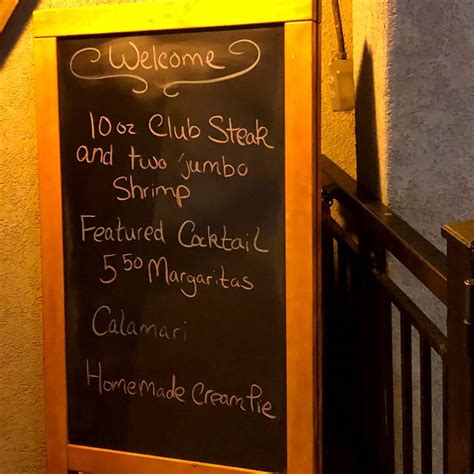 Welcome
10 oz Club Steak
and two jumbo
Shrimp
Featured Cocktail
5 50 Margaritas
Calamari
Homemade Cream Pie